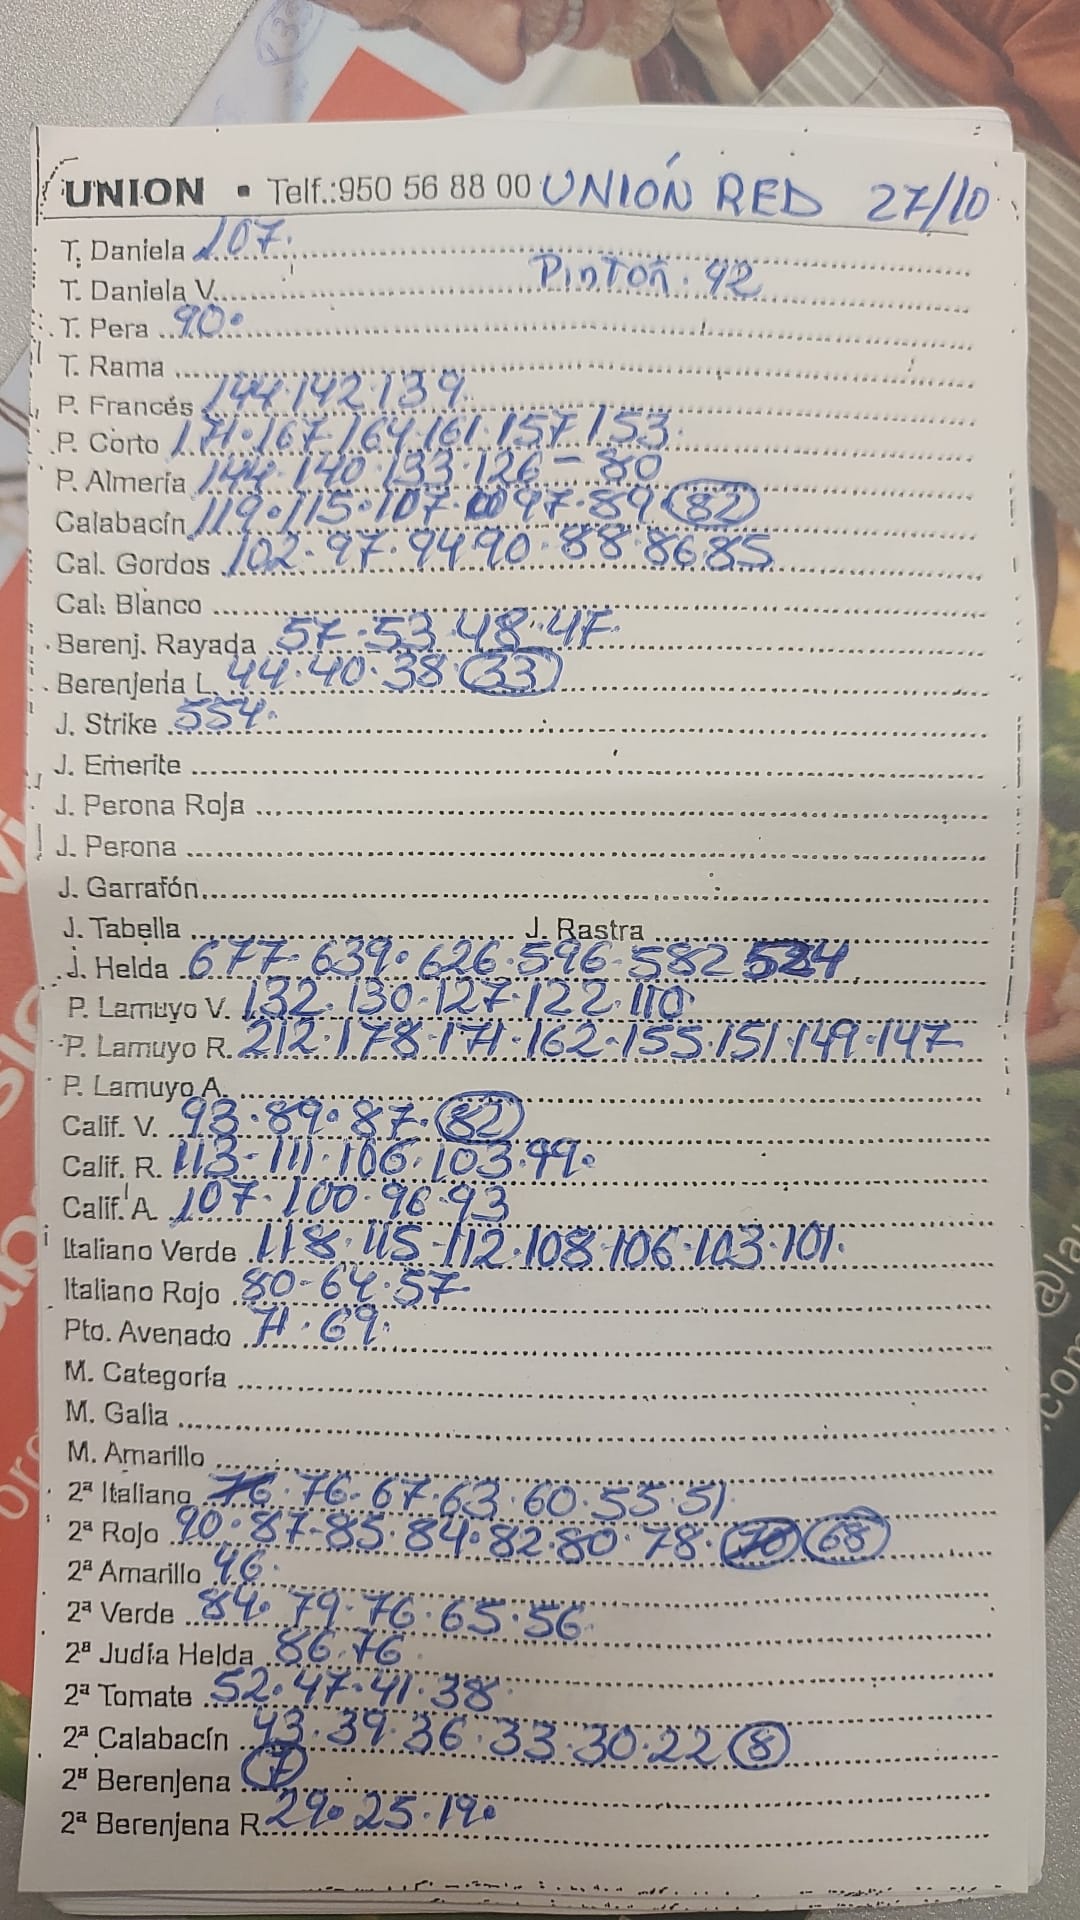 UNION • Telf.:950 56 88 00 UNIÓN RED 27/10
T. Daniela 107.
T. Daniela V. Pinton. 92
T. Pera 90.
T. Rama
P. Francés 144.142.139.
P. Corto 171.167.164.161.157.153.
P. Almería 144.140.133.126-80
Calabacín 119.115.107.97.89 82
Cal. Gordos 102.97.94 90.88.86 85
Cal. Blanco
Berenj. Rayada 57.53.48.47.
Berenjena L. 44.40.38.33
J. Strike 554.
J. Emerite
J. Perona Roja
J. Perona
J. Garrafón
J. Tabella J. Rastra
J. Helda 677-639.626.596-582 524
P. Lamuyo V. 132.130-127-122.110
P. Lamuyo R. 212.178.171-162-155.151.149.147
P. Lamuyo A.
Calif. V. 93.89.87.82
Calif. R. 113-111.106.103.99.
Calif. A. 107.100.96.93
Italiano Verde 118.115-112.108.106.103.101.
Italiano Rojo 80-64.57
Pto. Avenado 71.69.
M. Categoría
M. Galia
M. Amarillo
2ª Italiano 76.76-67.63.60.55.51.
2ª Rojo 90.87-85.84.82.80.78.70 68
2ª Amarillo 46.
2ª Verde 84.79.76.65.56.
2ª Judía Helda 86.76.
2ª Tomate 52.47.41.38.
2ª Calabacín 43.39.36.33.30.22 8
2ª Berenjena 7
2ª Berenjena R. 29.25.19.